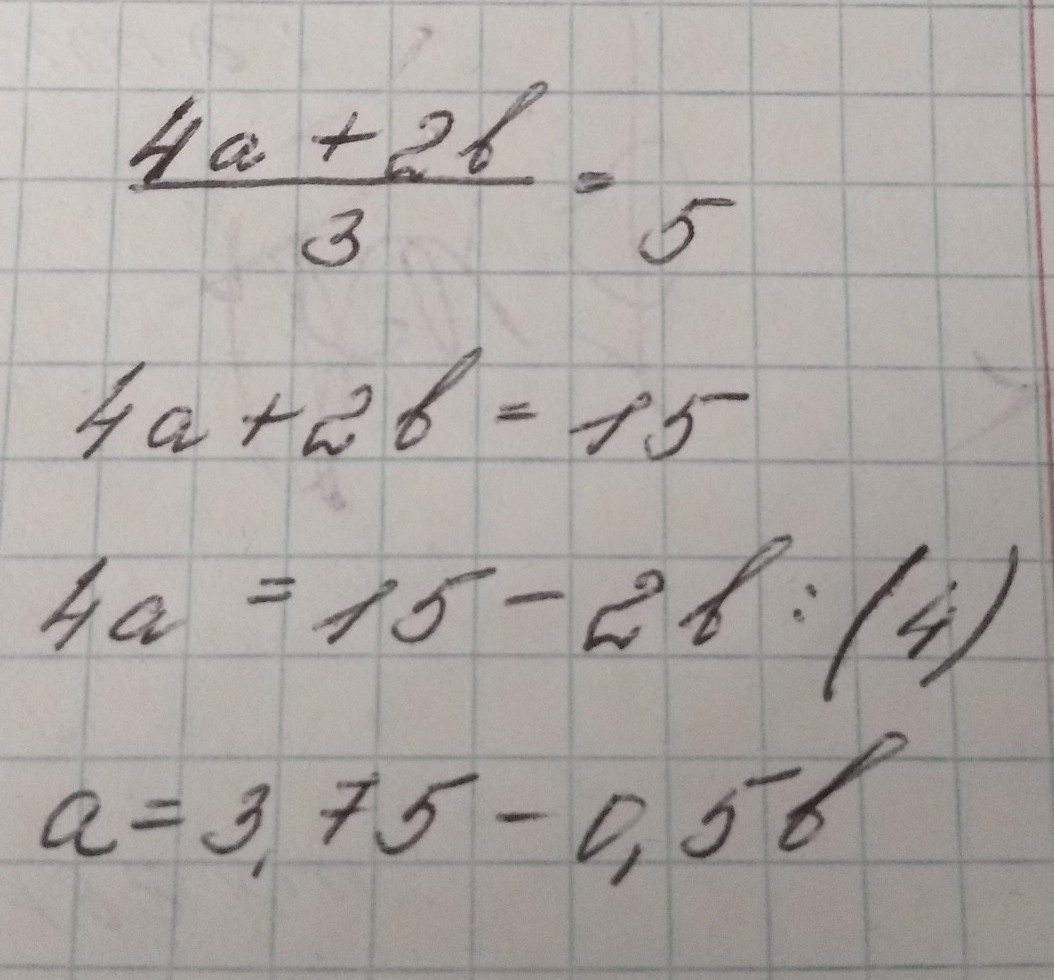 (4a + 2b)/3 = 5
4a + 2b = 15
4a = 15 - 2b : (4)
a = 3,75 - 0,5b